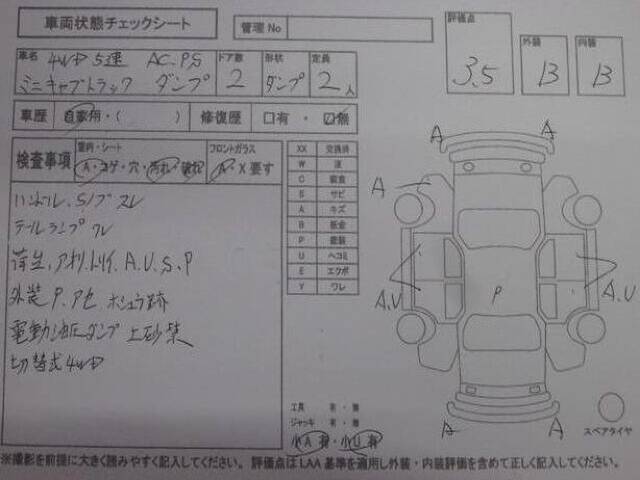 車両状態チェックシート
管理No
評価点 3.5
外装 B
内装 B
車名 4WD 5速 AC.PS
ミニキャブトラック ダンプ
ドア数 2
形状 ダンプ
定員 2人
車歴 自家用・( )
修復歴 □有・☑無
検査事項
室内・シート
A・コゲ・穴・汚れ・破れ
フロントガラス
A・X要す
ハンドル、S/ブスレ
テールランプ ワレ
荷台、アオリ、トリイ、A.U.S.P
外装 P.アセ ホシュウ跡
電動油圧ダンプ 土砂禁
切替式4WD
XX 交換済
W 波
C 腐食
S サビ
A キズ
B 板金
P 塗装
U ヘコミ
E エクボ
Y ワレ
A
A
A
A.U
A.U
P
A
A
工具 有・無
ジャッキ 有・無
小A有・小U有
スペアタイヤ
※撮影を前提に大きく踏みやすく記入してください。評価点はLAA基準を適用し外装・内装評価を含めて正しく記入してください。